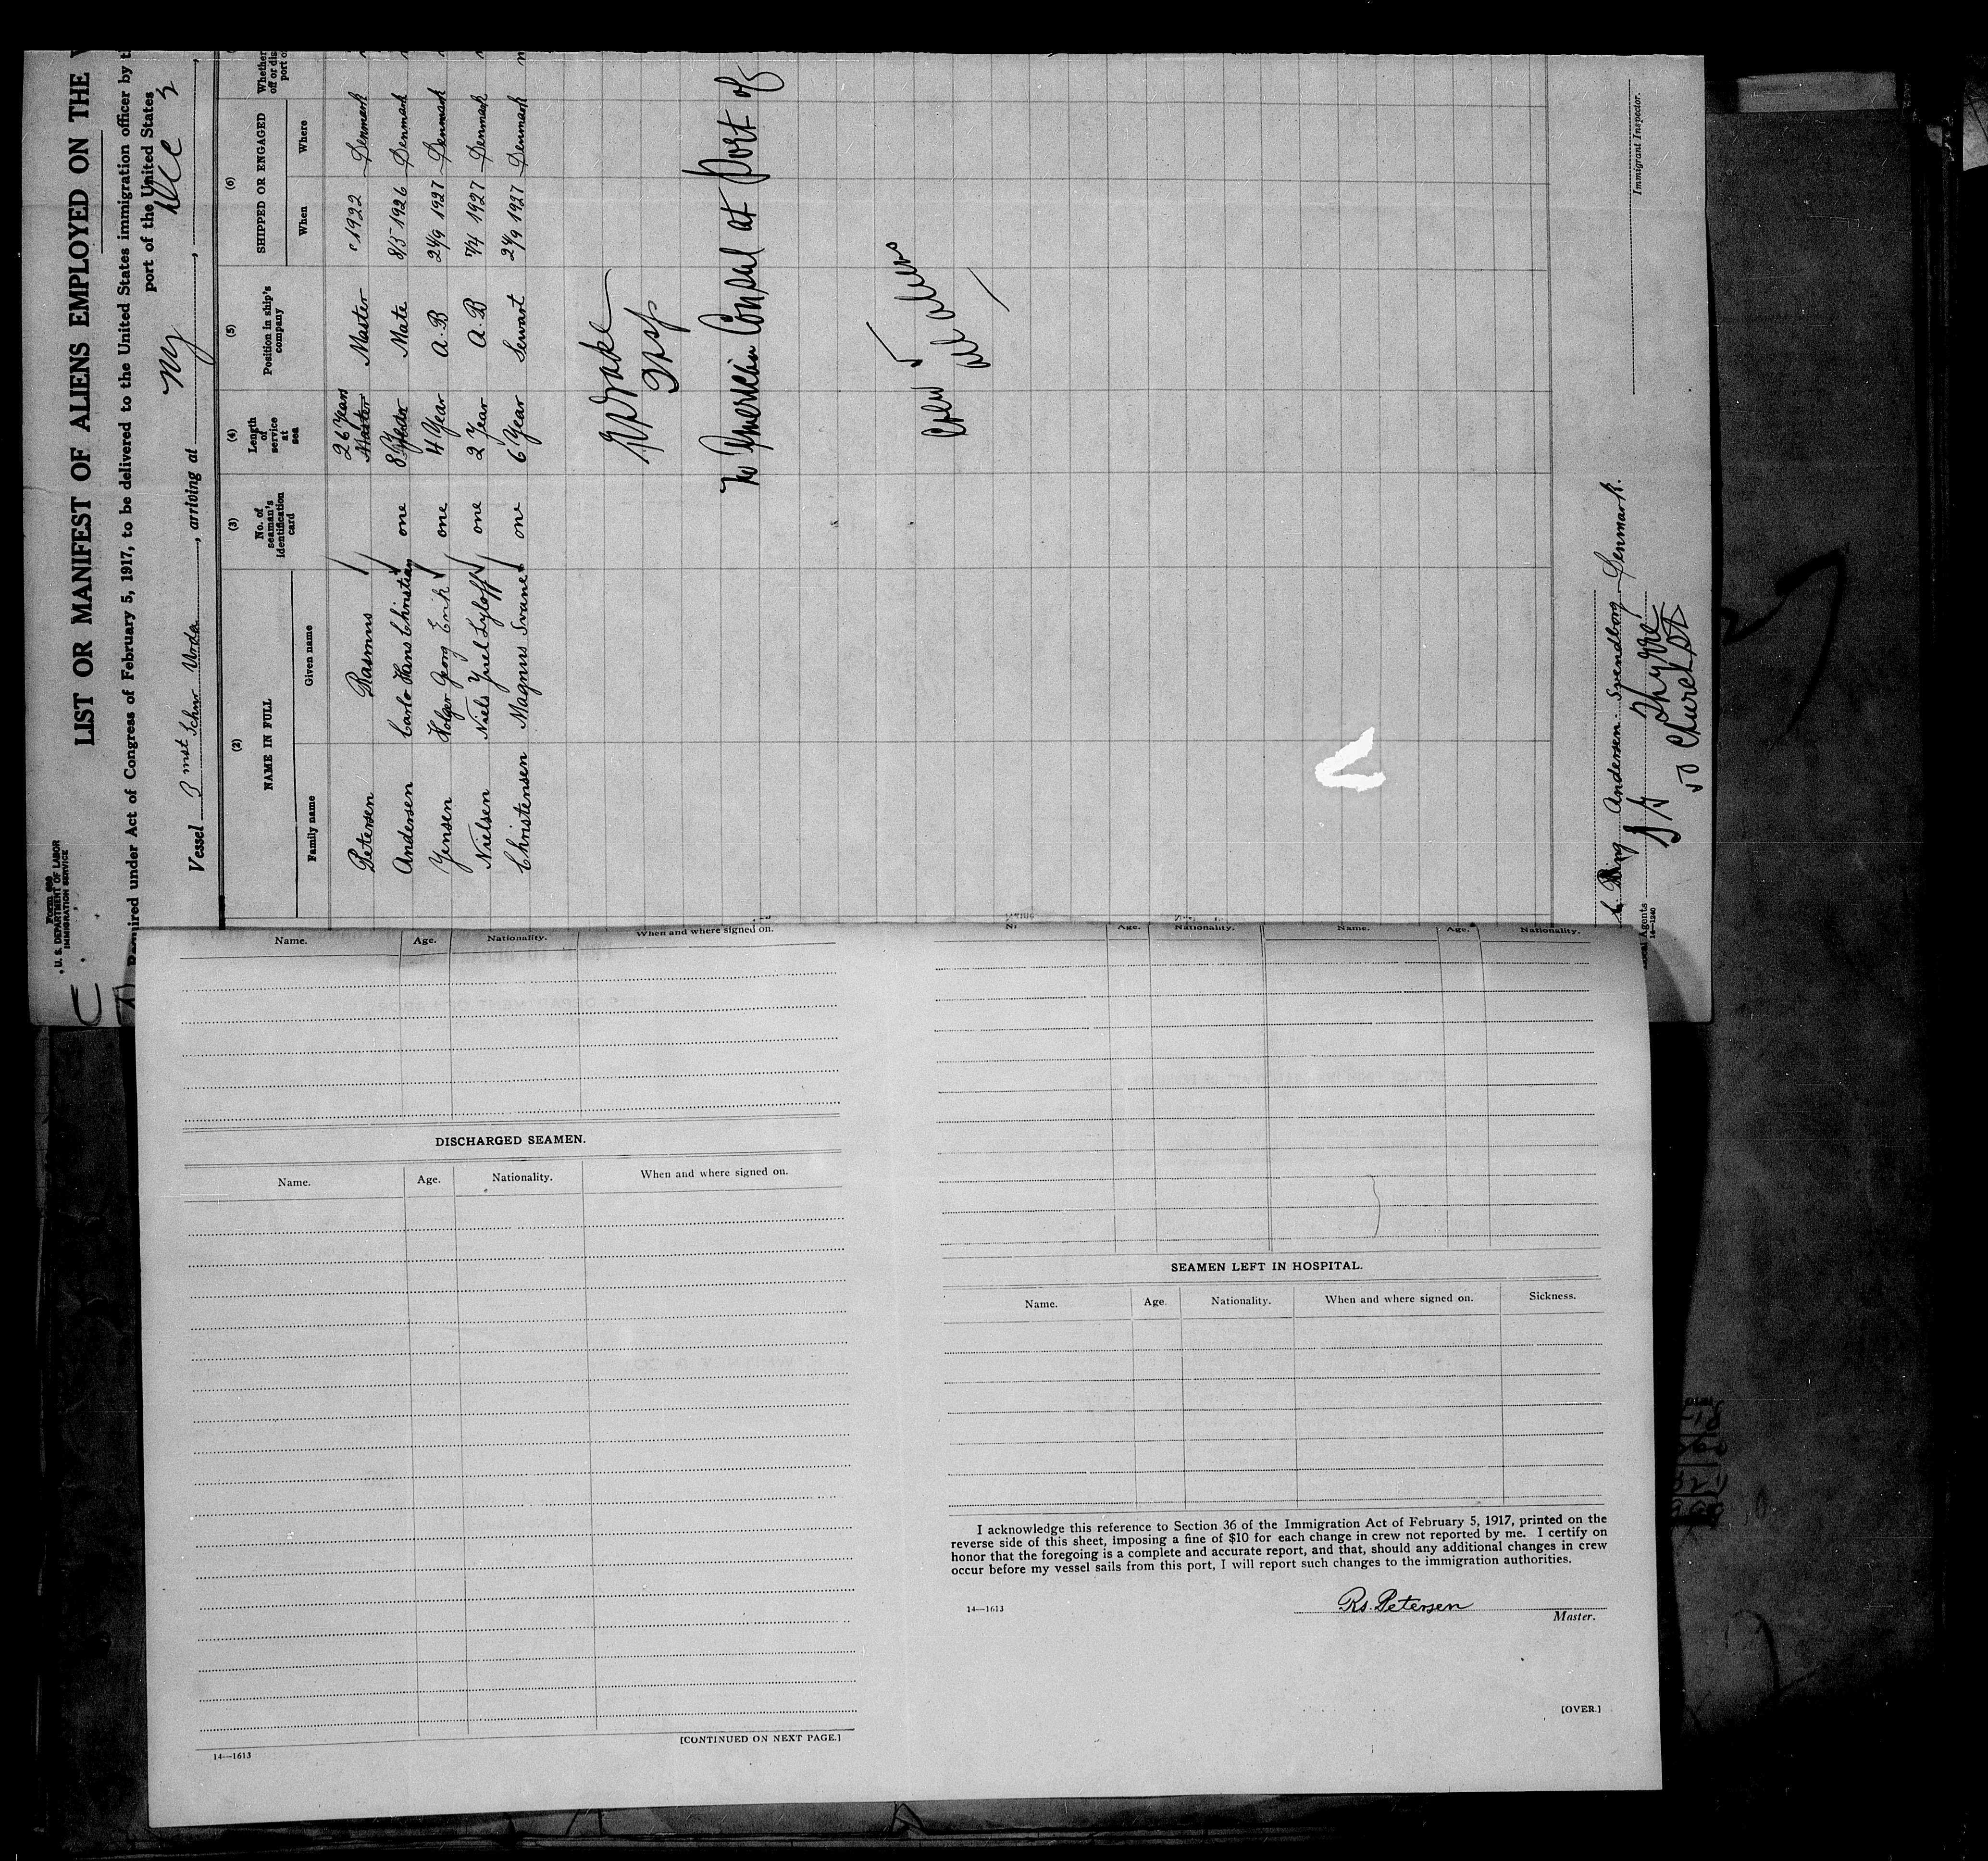 Form 680
U. S. DEPARTMENT OF LABOR
IMMIGRATION SERVICE
LIST OR MANIFEST OF ALIENS EMPLOYED ON THE V
Required under Act of Congress of February 5, 1917, to be delivered to the United States immigration officer by t
port of the United States
Vessel 3 mst Schnr Urda, arriving at NY, Dec 3,
(2) (3) (4) (5) (6)
NAME IN FULL No. of seaman's identification card Length of service at sea Position in ship's company SHIPPED OR ENGAGED Whether
off or dis
port o
Family name Given name When Where
Petersen Rasmus 26 Years Master 1922 Denmark
Andersen Carlo Hans Christian one 8 Year Mate 8/5 1926 Denmark
Yensen Holger Georg Erik one 4 Year A.B 24/9 1927 Denmark
Nielsen Niels one 2 Year A.B 7/4 1927 Denmark
Christensen Magnus Svane one 6 Year Sewart 24/9 1927 Denmark
Drake
Insp
No American Consul at Port of
Crew 5
all aliens
Immigrant Inspector.
Andersen Svendborg Denmark.
50 Church St
Agents
14—1240
Name. Age. Nationality. When and where signed on.
DISCHARGED SEAMEN.
Name. Age. Nationality. When and where signed on.
[CONTINUED ON NEXT PAGE.]
14—1613
Age. Nationality. Name. Age. Nationality.
SEAMEN LEFT IN HOSPITAL.
Name. Age. Nationality. When and where signed on. Sickness.
I acknowledge this reference to Section 36 of the Immigration Act of February 5, 1917, printed on the
reverse side of this sheet, imposing a fine of $10 for each change in crew not reported by me. I certify on
honor that the foregoing is a complete and accurate report, and that, should any additional changes in crew
occur before my vessel sails from this port, I will report such changes to the immigration authorities.
14—1613
Rs. Petersen
Master.
[OVER.]